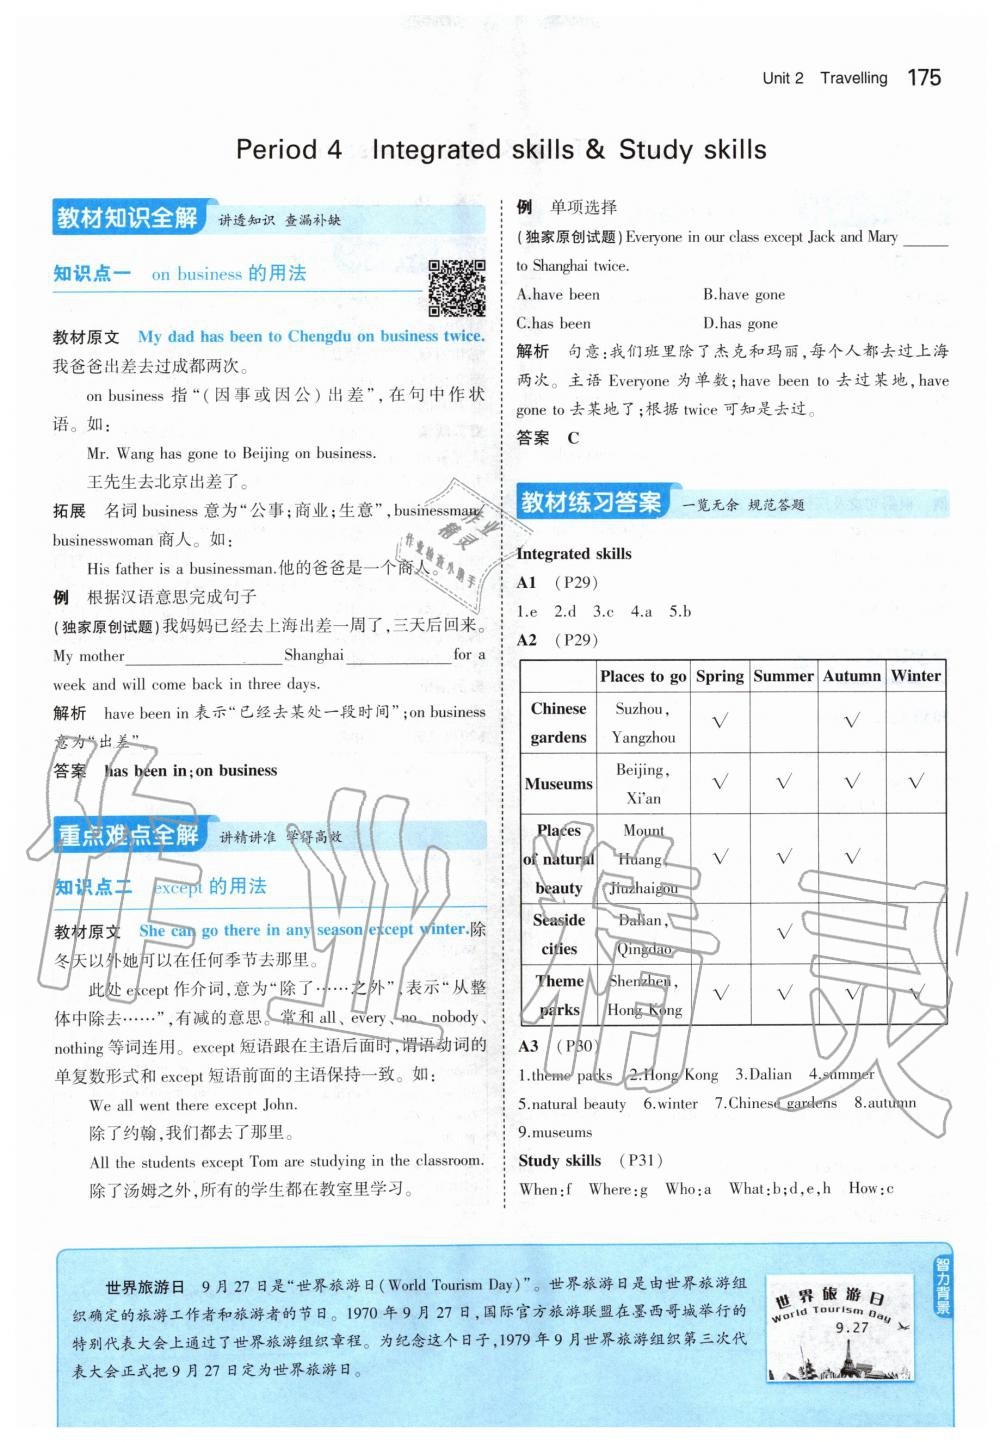 Unit 2 Travelling 175
Period 4 Integrated skills & Study skills
教材知识全解 讲透知识 查漏补缺
知识点一 on business 的用法
教材原文 My dad has been to Chengdu on business twice.
我爸爸出差去过成都两次。
on business 指“(因事或因公)出差”,在句中作状
语。如:
Mr. Wang has gone to Beijing on business.
王先生去北京出差了。
拓展 名词 business 意为“公事;商业;生意”,businessman/
businesswoman 商人。如:
His father is a businessman.他的爸爸是一个商人。
例 根据汉语意思完成句子
(独家原创试题)我妈妈已经去上海出差一周了,三天后回来。
My mother________________Shanghai___________for a
week and will come back in three days.
解析 have been in 表示“已经去某处一段时间”;on business
意为“出差”。
答案 has been in;on business
重点难点全解 讲精讲准 学得高效
知识点二 except 的用法
教材原文 She can go there in any season except winter.除
冬天以外她可以在任何季节去那里。
此处 except 作介词,意为“除了……之外”,表示“从整
体中除去……”,有减的意思。常和 all、every、no、nobody、
nothing 等词连用。except 短语跟在主语后面时,谓语动词的
单复数形式和 except 短语前面的主语保持一致。如:
We all went there except John.
除了约翰,我们都去了那里。
All the students except Tom are studying in the classroom.
除了汤姆之外,所有的学生都在教室里学习。
例 单项选择
(独家原创试题)Everyone in our class except Jack and Mary _____
to Shanghai twice.
A.have been B.have gone
C.has been D.has gone
解析 句意:我们班里除了杰克和玛丽,每个人都去过上海
两次。主语 Everyone 为单数;have been to 去过某地,have
gone to 去某地了;根据 twice 可知是去过。
答案 C
教材练习答案 一览无余 规范答题
Integrated skills
A1 (P29)
1.e 2.d 3.c 4.a 5.b
A2 (P29)
Places to go Spring Summer Autumn Winter
Chinese gardens Suzhou, Yangzhou √ √
Museums Beijing, Xi'an √ √ √ √
Places of natural beauty Mount Huang, Jiuzhaigou √ √ √
Seaside cities Dalian, Qingdao √
Theme parks Shenzhen, Hong Kong √ √ √ √
A3 (P30)
1.theme parks 2.Hong Kong 3.Dalian 4.summer
5.natural beauty 6.winter 7.Chinese gardens 8.autumn
9.museums
Study skills (P31)
When:f Where:g Who:a What:b;d,e,h How:c
世界旅游日 9 月 27 日是“世界旅游日(World Tourism Day)”。世界旅游日是由世界旅游组
织确定的旅游工作者和旅游者的节日。1970 年 9 月 27 日,国际官方旅游联盟在墨西哥城举行的
特别代表大会上通过了世界旅游组织章程。为纪念这个日子,1979 年 9 月世界旅游组织第三次代
表大会正式把 9 月 27 日定为世界旅游日。
世界旅游日
World Tourism Day
9.27
智力背景
作业精灵
作业精灵
作业检查小助手